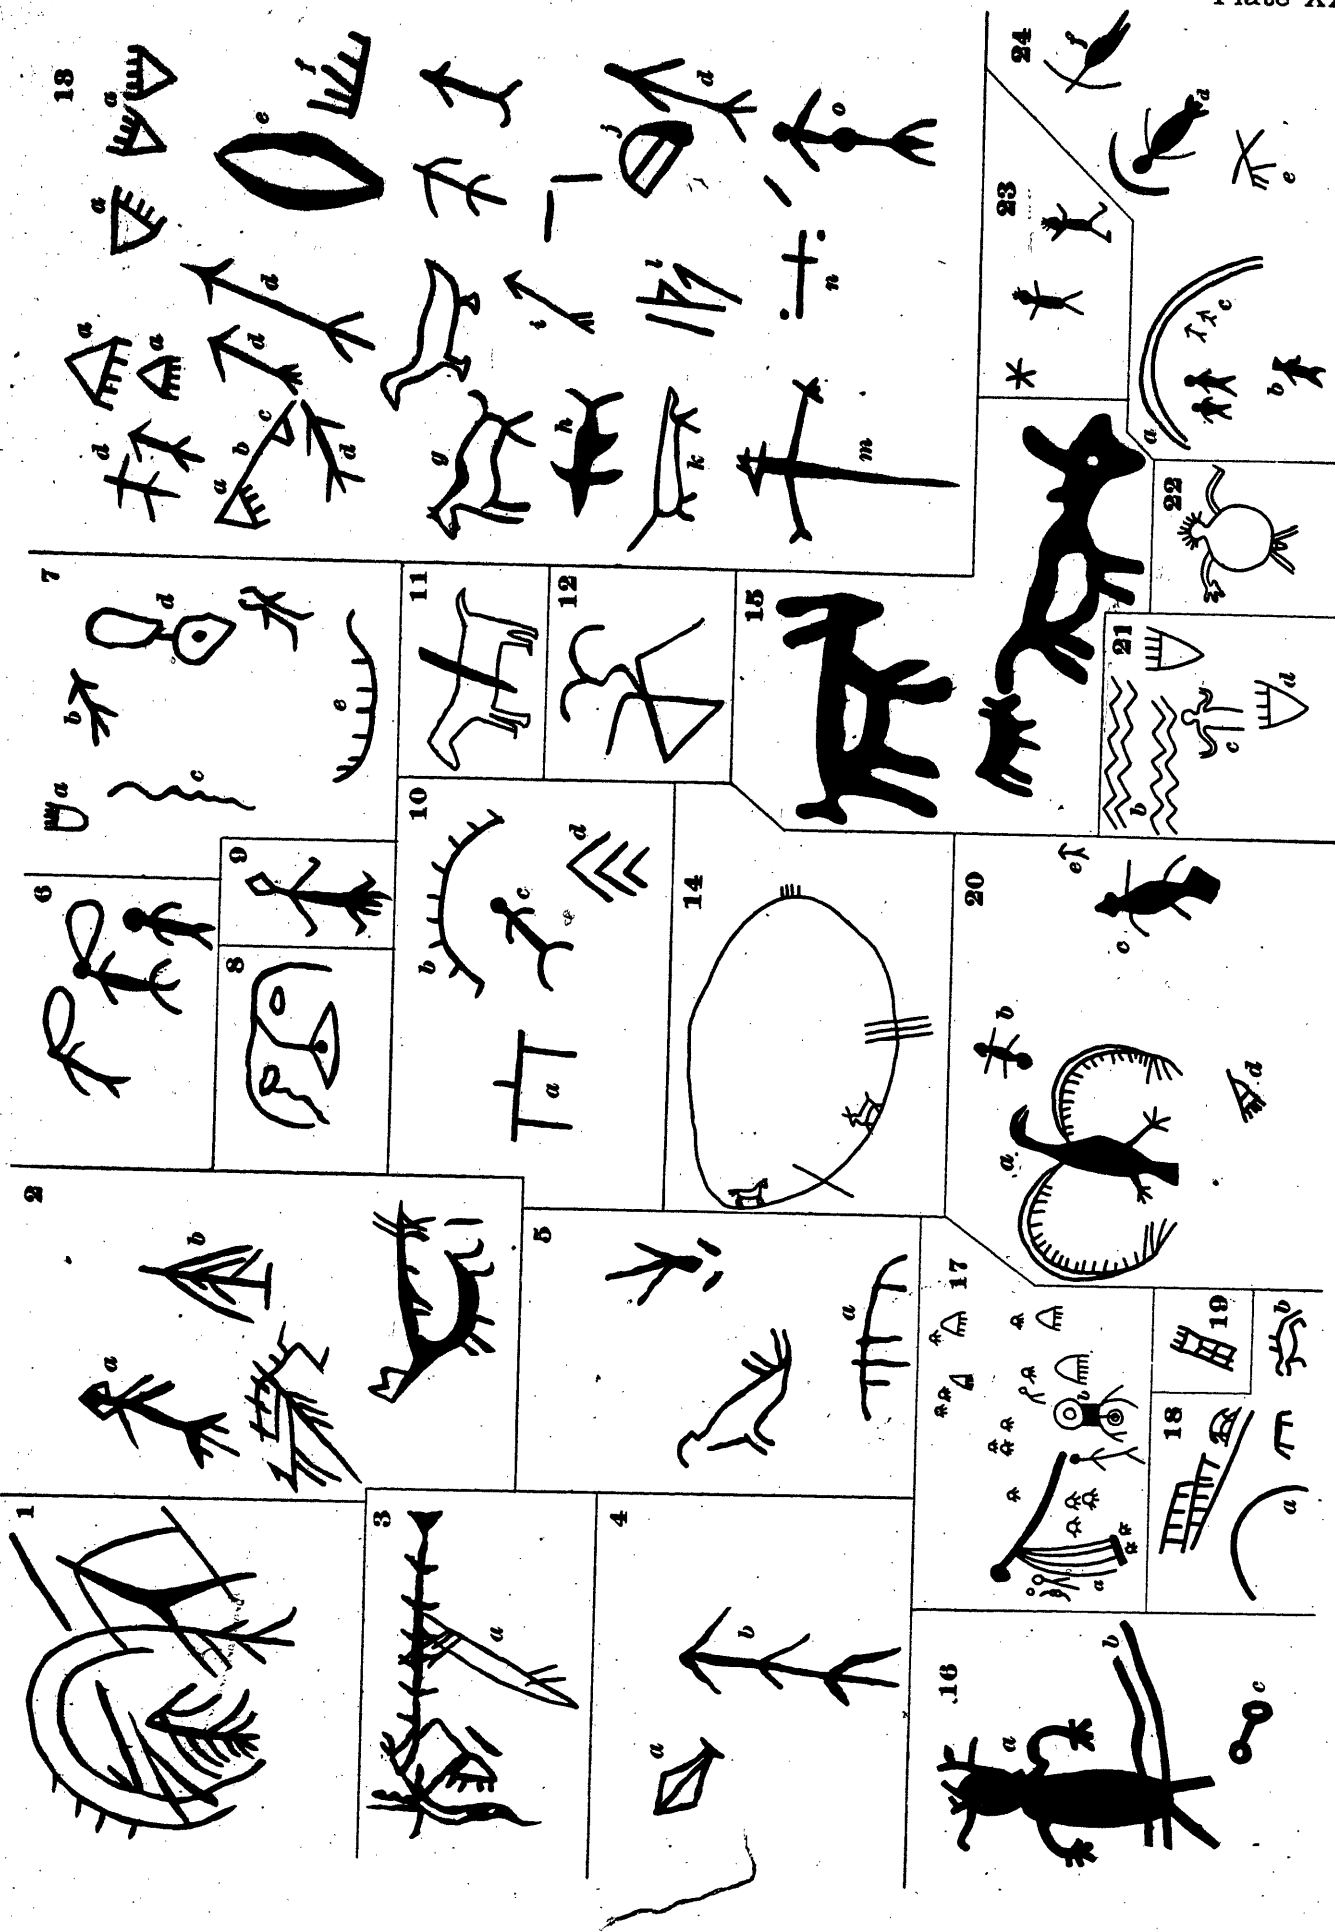 Plate
1
2
a
b
3
a
4
a
b
5
a
6
7
a
b
c
d
e
8
9
10
a
b
c
d
11
12
13
a
a
a
a
a
b
c
d
d
d
d
d
e
f
g
h
i
j
k
l
m
n
o
14
15
16
a
b
c
17
a
b
18
a
b
19
20
a
b
c
d
e
21
b
c
d
22
23
24
a
b
c
d
e
f